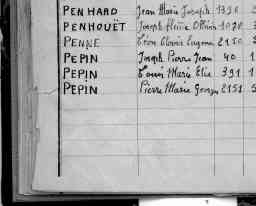 PENHARD Jean Marie Joseph 1320
PENHOUËT Joseph Pierre 1020
PENNE Léon Eugène 2150
PEPIN Joseph Pierre Jean 40 1
PEPIN Louis Marie Elie 391 1
PEPIN Pierre Marie Georges 2151 5